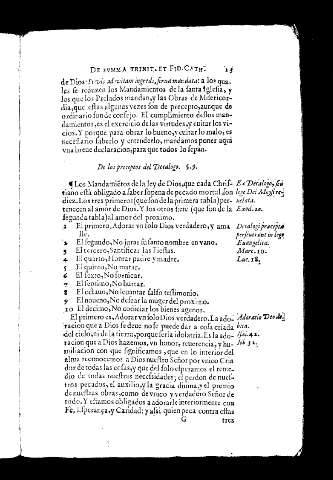 DE SVMMA TRINIT. ET FID. CATH. 25
de Dios: Si vis ad vitam ingredi, serua mandata: a los qua-
les se reduzen los Mandamientos de la santa Iglesia, y
los que los Prelados mandan, y las Obras de Misericor-
dia, que estas algunas vezes son de precepto, aunque de
ordinario son de consejo. El cumplimiento destos man-
damientos, es el exercicio de las virtudes, y euitar los vi-
cios. Y porque para obrar lo bueno, y euitar lo malo, es
necessario saberlo y entenderlo, mandamos poner aqui
vna breue declaracion, para que todos lo sepan.
De los preceptos del Decalogo. §.9.
¶ Los Mandamiētos de la ley de Dios, que cada Chris-
tiano està obligado a saber so pena de pecado mortal, son
diez. Los tres primeros (que son de la primera tabla) per-
tenecen al amor de Dios. Y los otros siete (que son de la
segunda tabla) al amor del proximo.
1 El primero, Adorar vn solo Dios verdadero, y ama
lle.
2 El segundo, No jurar su santo nombre en vano.
3 El tercero, Santificar las fiestas.
4 El quarto, Honrar padre y madre.
5 El quinto, No matar.
6 El sexto, No fornicar.
7 El setimo, No hurtar.
8 El octauo, No leuantar falso testimonio.
9 El noueno, No dessear la muger del proximo.
10 El dezimo, No codiciar los bienes agenos.
El primero es, Adorar vn solo Dios verdadero. La ado-
racion que a Dios se deue no se puede dar a cosa criada
del cielo, ni de la tierra, porque seria idolatria. Es la ado-
racion que a Dios hazemos, vn honor, reuerencia, y hu-
millacion con que significamos, que en lo interior del
alma reconocemos a Dios nuestro Señor por vnico Cria
dor de todas las cosas, y que del solo esperamos el reme-
dio de todas nuestras necessidades; el perdon de nues-
tros pecados, el auxilio, y la gracia diuina, y el premio
de nuestras obras, como de vnico y verdadero Señor de
todo. Y estamos obligados a adorarle interiormente con
Fe, Esperança, y Caridad; y assi, quien peca contra estas
G tres
Ex Decalogo, siue
lege Dei
Exod. 20.
Decalogi præcepta
perseuerant in lege
Euangelica.
Marc. 10.
Luc. 18.
Adoratio Deo de-
bita.